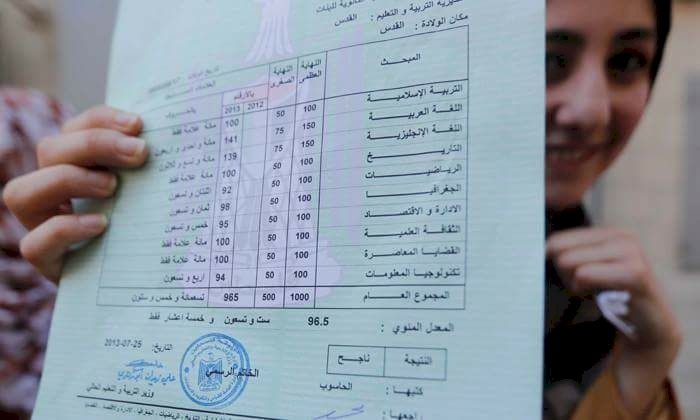 مديرية التربية و التعليم : القدس
مكان الولادة : القدس
المبحث النهاية العظمى النهاية الصغرى بالأرقام 2012 2013 بالحروف
التربية الإسلامية 100 50 100 مائة علامة فقط
اللغة العربية 150 75 141 مائة و احدى و اربعون
اللغة الإنجليزية 150 75 139 مائة و تسع و ثلاثون
التاريخ 100 50 100 مائة علامة فقط
الرياضيات 100 50 92 اثنتان و تسعون
الجغرافيا 100 50 98 ثمان و تسعون
الادارة و الاقتصاد 100 50 95 خمس و تسعون
الثقافة العلمية 100 50 100 مائة علامة فقط
القضايا المعاصرة 100 50 100 مائة علامة فقط
تكنولوجيا المعلومات 100 50 94 اربع و تسعون
المجموع العام 1000 500 965 تسعمائة و خمس و ستون
المعدل المئوي : 96.5 ست و تسعون و خمسة اعشار فقط
النتيجة ناجح
التاريخ: 25-07-2013
كتبها : الحاسوب
الخاتم الرسمي
راجعها :
وزير التربية و التعليم العالي